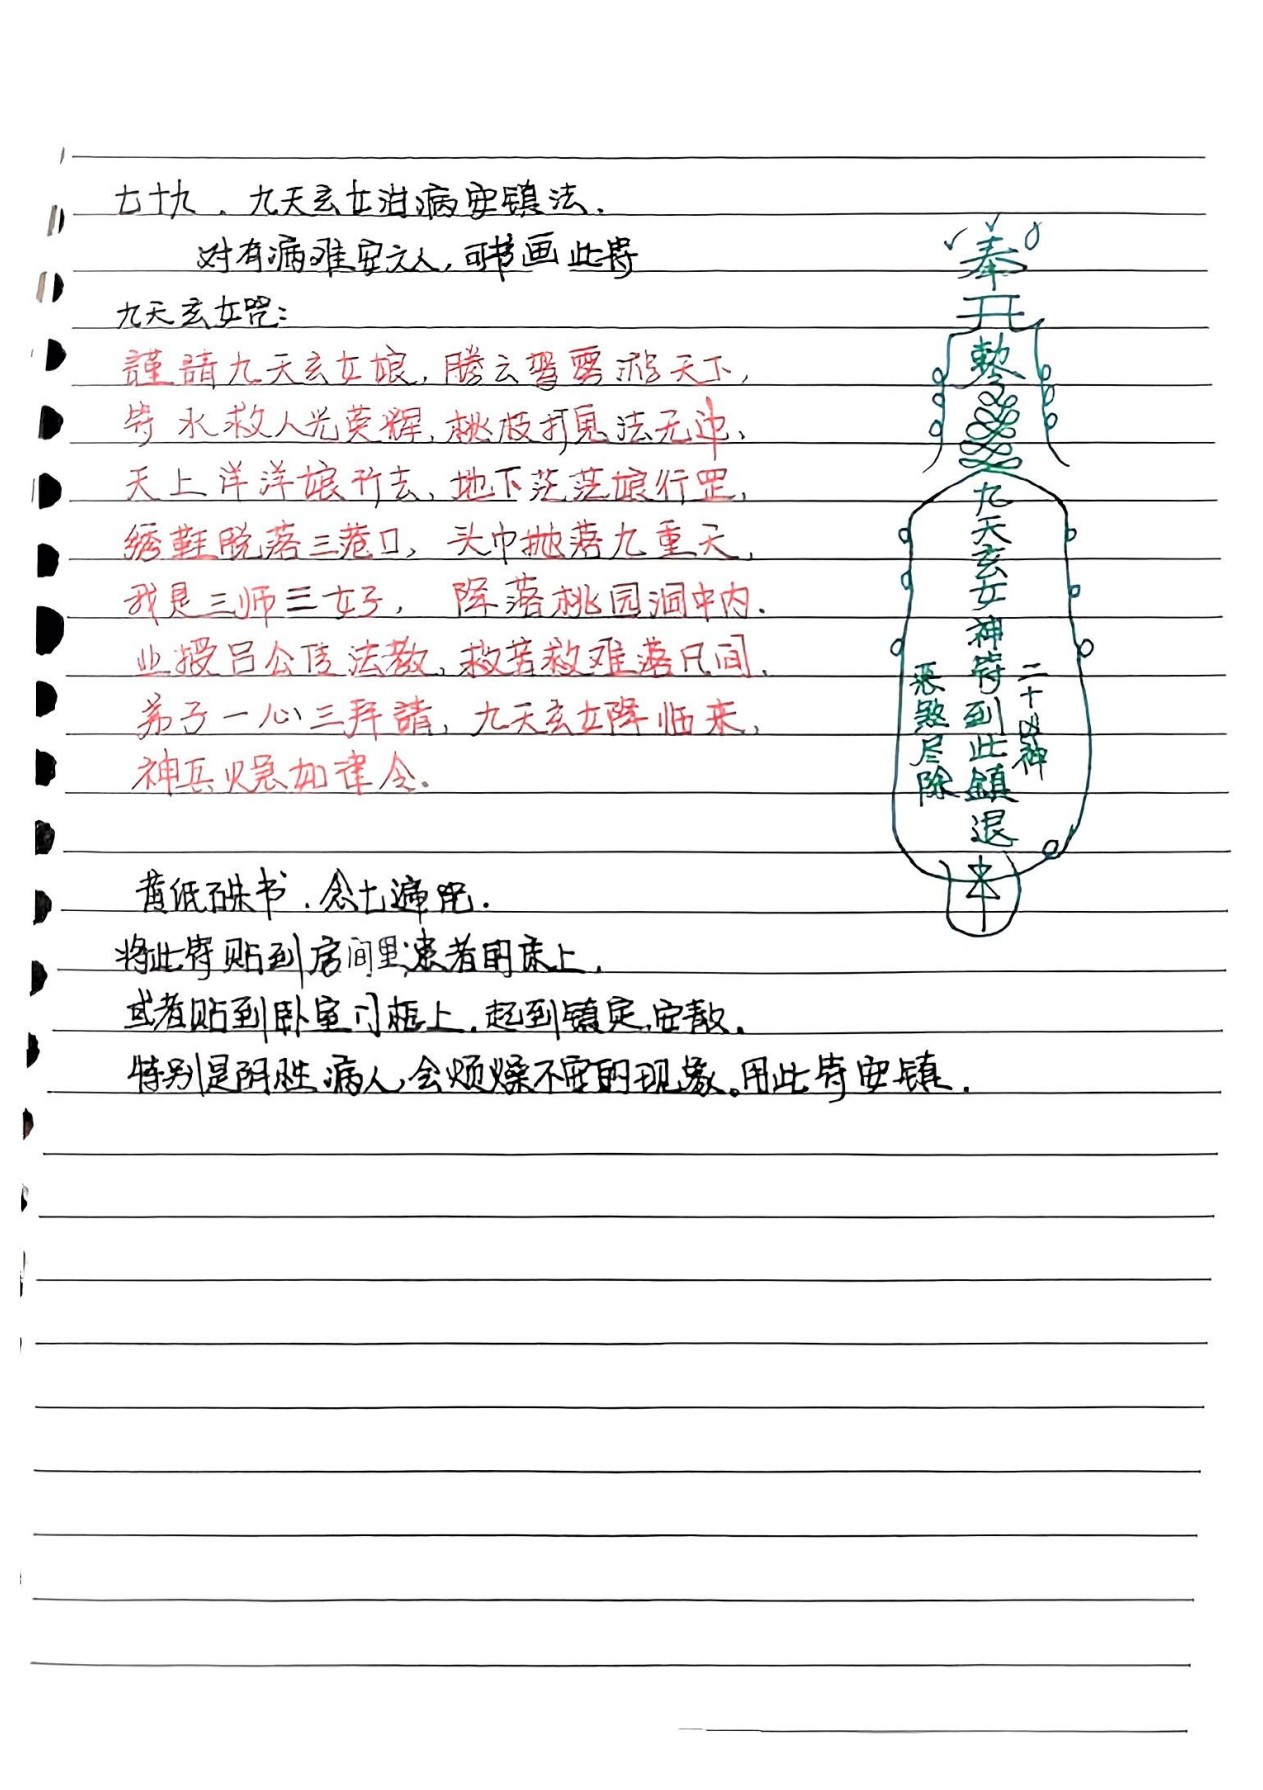 七十九、九天玄女治病安镇法.
对有病难安之人,可书画此符
九天玄女咒:
謹請九天玄女娘,腾云驾雾游天下,
符水救人光荣辉,桃枝打鬼法无边、
天上洋洋娘行去,地下茫茫娘行罡,
绣鞋脱落三巷口,头巾抛落九重天,
我是三师三女子,降落桃园洞中内.
业授吕公传法教,救苦救难落凡间,
弟子一心三拜請,九天玄女降临来,
神兵火急如律令.
黄纸朱书.念七遍咒.
将此符贴到房间里患者的床上,
或者贴到卧室门框上.起到镇定,安散.
特别是阴性病人,会烦燥不安的现象。用此符安镇.
奉
敕
九天玄女神符到此鎮退
二十凶神
恶煞尽除